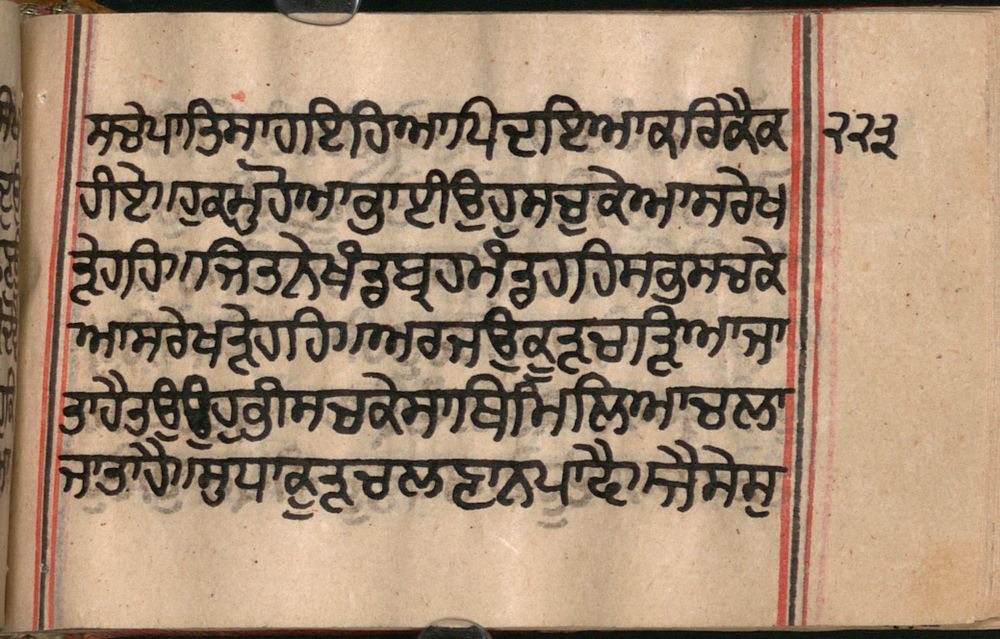 ਸਚੇਪਾਤਿਸਾਹਇਹਿਆਪਿਦਇਆਕਰਿਕੈਕ ੨੨੩
ਹੀਏ॥ਹੁਕਮੁਹੋਆਭਾਈਉਹੁਸਚੁਕੇਆਸਰੇਖ
ੜੇਹਹਿ॥ਜਿਤਨੇਖੰਡਬ੍ਰਹਮੰਡਹਹਿਸਭੁਸਚਕੇ
ਆਸਰੇਖੜੇਹਹਿ॥ਅਰਜਉਕੂੜਚਾੜਿਆਜਾ
ਤਾਹੈਤਉਉਹੁਭੀਸਚਕੇਸਾਥਿਮਿਲਿਆਚਲਾ
ਜਾਤਾਹੈ॥ਸੁਪਾਕੂੜਚਲਣਾਨਪਾਵੈ॥ਜੈਸੇਸੁ